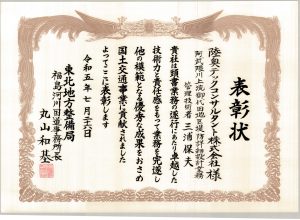 表彰状
陸奥テックコンサルタント株式会社 様
阿武隈川上流御代田地区堤防詳細設計業務
管理技術者 三浦保夫
貴社は頭書業務の遂行にあたり卓越した
技術力と責任感をもって業務を完遂し
他の模範となる優秀な成果をおさめ
国土交通事業に貢献されました
よってここに表彰します
令和五年七月二十六日
東北地方整備局
福島河川国道事務所長
丸山和基